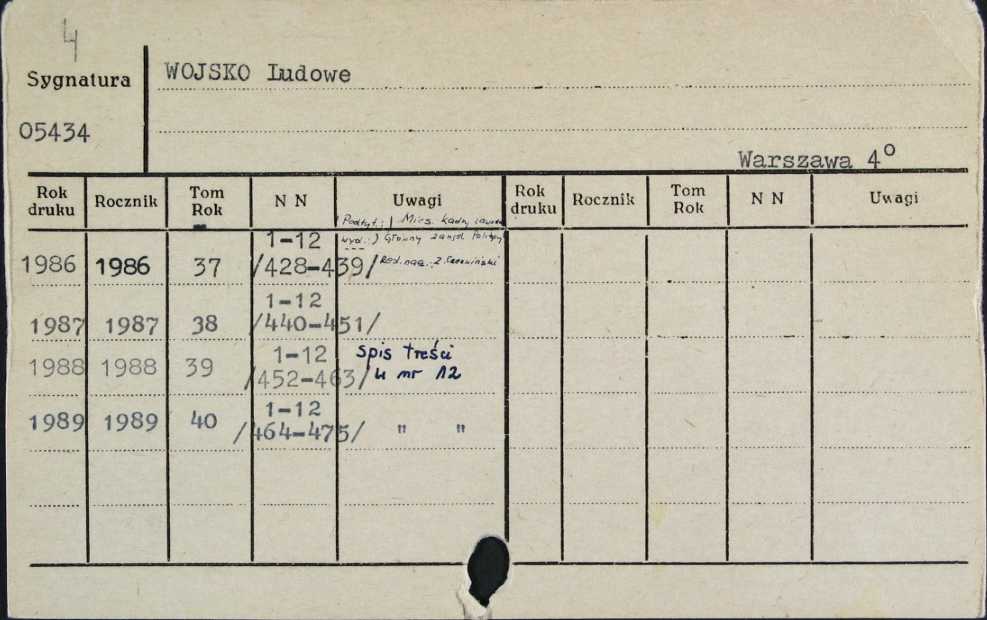 4
Sygnatura
WOJSKO Ludowe
05434
Warszawa 4°
Rok druku Rocznik Tom Rok N N Uwagi Rok druku Rocznik Tom Rok N N Uwagi
Podtyt.: Mies. kadry
1-12 wyd.:) Główny Zarząd Polityczny
1986 1986 37 /428-439/ Red. nacz.: Z. Czerwiński
1-12
1987 1987 38 /440-451/
1-12 spis treści
1988 1988 39 /452-463/ w nr 12
1-12
1989 1989 40 /464-475/ " "